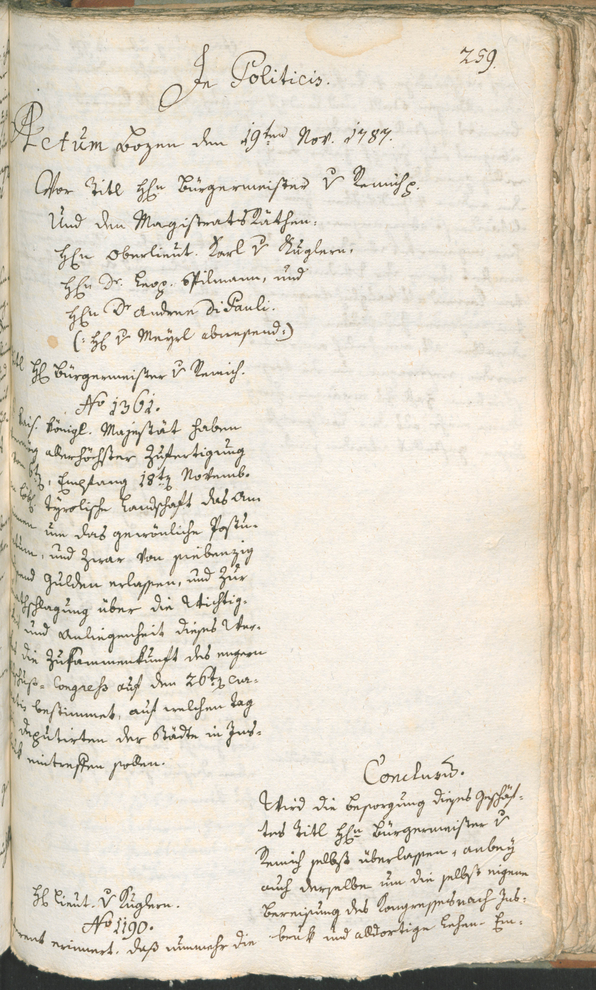 259.
In Politicis.
Actum Bozen den 19ten Nov. 1787.
Vor Titl Hln Bürgermeister v Remich p.
Und den Magistrats Räthen:
Hln Oberlieut. Karl v Kuglern,
Hln Dr. Leop. Pilmann, und
Hln Dr Andree Di Pauli.
(: Hl v Mayrl abwesend :)
Hl Bürgermeister v Remich.
No 1361.
kais. königl. Majestät haben
allerhöchster Zufertigung
Empfang 18t Novemb.
tyrolische Landschaft das An
um das gewönliche Postu-
und zwar von siebenzig
Gulden erlassen, und zur
über die Wichtig-
und Anliegenheit dieses Wer-
die Zusammenkunft des engern
Congreß auf den 26t cur-
bestimmet, auf welchen Tag
deputirten der Städte in Ins-
eintreffen sollen.
Conclusum.
Wird die besorgung dieses Geschäf-
tes Titl Hln Bürgermeister v
Remich selbst überlassen, anbey
auch derselbe um die selbst eigene
Bereisung des Kongresses nach Ins-
bruk und alldortige Lehen- Em-
Hl Lieut. v Kuglern.
No 1190.
erinnert, daß nunmehr die